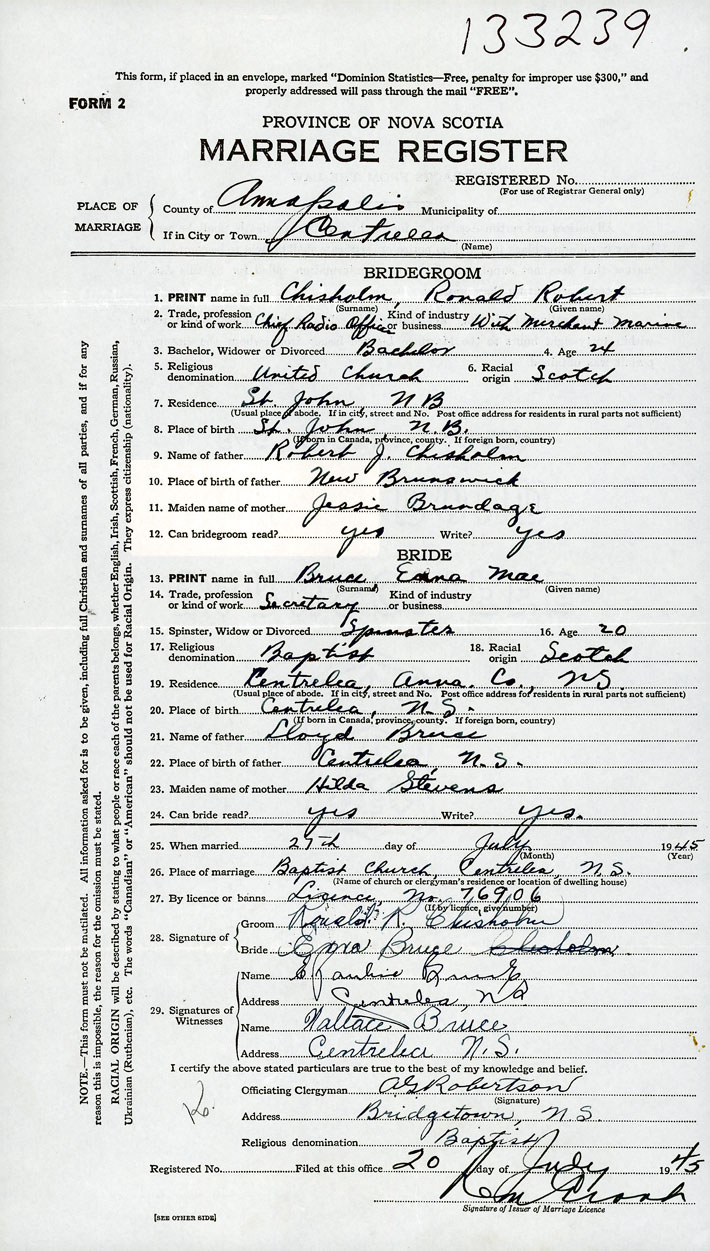 133239
This form, if placed in an envelope, marked "Dominion Statistics—Free, penalty for improper use $300," and
properly addressed will pass through the mail "FREE".
FORM 2
PROVINCE OF NOVA SCOTIA
MARRIAGE REGISTER
REGISTERED No.
(For use of Registrar General only)
PLACE OF MARRIAGE
County of Annapolis Municipality of
If in City or Town Centrelea
(Name)
BRIDEGROOM
1. PRINT name in full Chisholm, Ronald Robert
(Surname) (Given name)
2. Trade, profession or kind of work Chief Radio Officer Kind of industry or business With Merchant Marine
3. Bachelor, Widower or Divorced Bachelor 4. Age 24
5. Religious denomination United Church 6. Racial origin Scotch
7. Residence St. John N B
(Usual place of abode. If in city, street and No. Post office address for residents in rural parts not sufficient)
8. Place of birth St. John N.B.
(If born in Canada, province, county. If foreign born, country)
9. Name of father Robert J. Chisholm
10. Place of birth of father New Brunswick
11. Maiden name of mother Jessie Brundage
12. Can bridegroom read? yes Write? yes
BRIDE
13. PRINT name in full Bruce Edna Mae
(Surname) (Given name)
14. Trade, profession or kind of work Secretary Kind of industry or business
15. Spinster, Widow or Divorced Spinster 16. Age 20
17. Religious denomination Baptist 18. Racial origin Scotch
19. Residence Centrelea, Anna. Co., N.S.
(Usual place of abode. If in city, street and No. Post office address for residents in rural parts not sufficient)
20. Place of birth Centrelea, N.S.
(If born in Canada, province, county. If foreign born, country)
21. Name of father Lloyd Bruce
22. Place of birth of father Centrelea N.S.
23. Maiden name of mother Hilda Stevens
24. Can bride read? yes Write? yes.
25. When married 27th day of July 1945
(Month) (Year)
26. Place of marriage Baptist Church, Centrelea, N.S.
(Name of church or clergyman's residence or location of dwelling house)
27. By licence or banns Licence, No. 76906
(If by licence, give number)
28. Signature of
Groom Ronald R. Chisholm
Bride Edna Bruce Chisholm
29. Signatures of Witnesses
Name Pauline
Address Centrelea, NS
Name Wallace Bruce
Address Centrelea N.S.
I certify the above stated particulars are true to the best of my knowledge and belief.
Officiating Clergyman A G Robertson
(Signature)
Address Bridgetown, N S.
Religious denomination Baptist
Registered No. Filed at this office 20 day of July 1945
Signature of Issuer of Marriage Licence
[SEE OTHER SIDE]
NOTE.—This form must not be mutilated. All information asked for is to be given, including full Christian and surnames of all parties, and if for any
reason this is impossible, the reason for the omission must be stated.
RACIAL ORIGIN will be described by stating to what people or race each of the parents belongs, whether English, Irish, Scottish, French, German, Russian,
Ukrainian (Ruthenian), etc. The words "Canadian" or "American" should not be used for Racial Origin. They express citizenship (nationality).